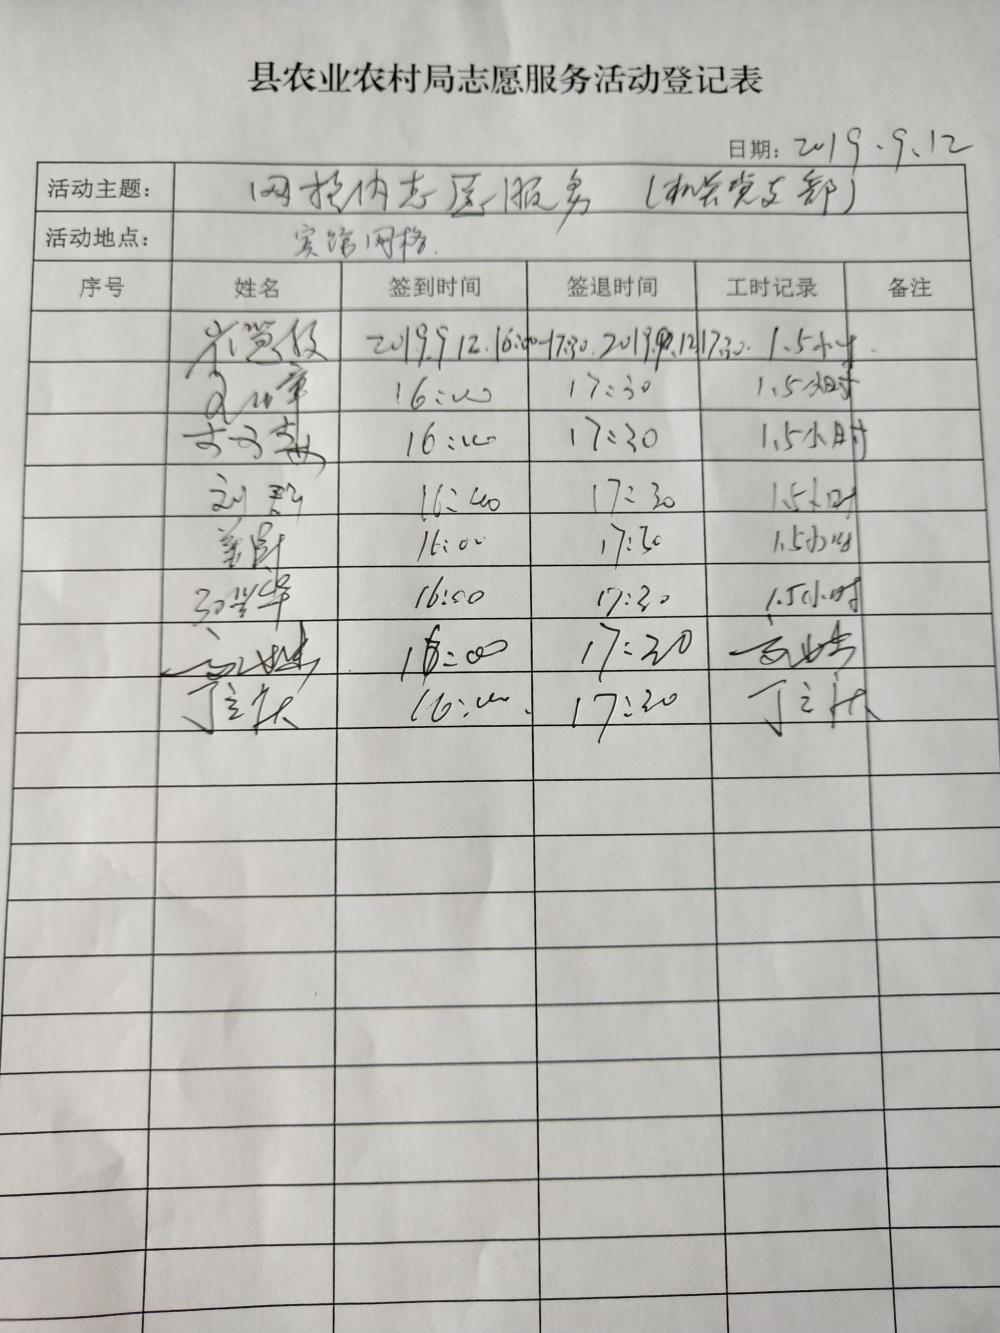 县农业农村局志愿服务活动登记表
日期：2019.9.12
活动主题： 网格内志愿服务 （机关党支部）
活动地点： 宾馆网格.
序号 姓名 签到时间 签退时间 工时记录 备注
2019.9.12.16:00-17:30. 2019.9.12 17:30. 1.5小时.
16:00 17:30 1.5小时
16:00 17:30 1.5小时
刘群 16:00 17:30 1.5小时
16:00 17:30 1.5小时
16:00 17:30 1.5小时
16:00 17:30
16:00. 17:30